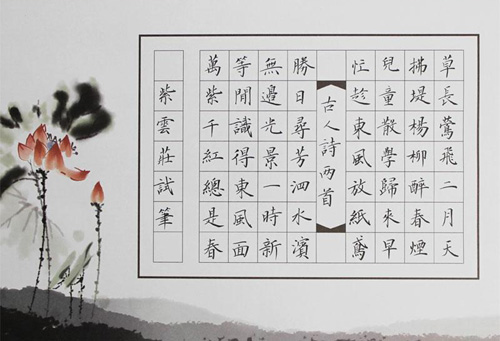 草長鶯飛二月天
拂堤楊柳醉春煙
兒童散學歸來早
忙趁東風放紙鳶
古人詩兩首
勝日尋芳泗水濱
無邊光景一時新
等閒識得東風面
萬紫千紅總是春
紫雲莊試筆